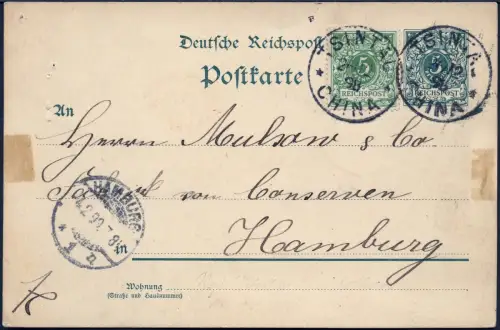 Deutsche Reichspost
Postkarte
TSINTAU
CHINA
5 5
REICHSPOST
TSINTAU
CHINA
5
REICHSPOST
An
Herrn Mulsow & Co
Fabrik von Conserven
HAMBURG
1 n
in Hamburg
Wohnung
(Straße und Hausnummer)